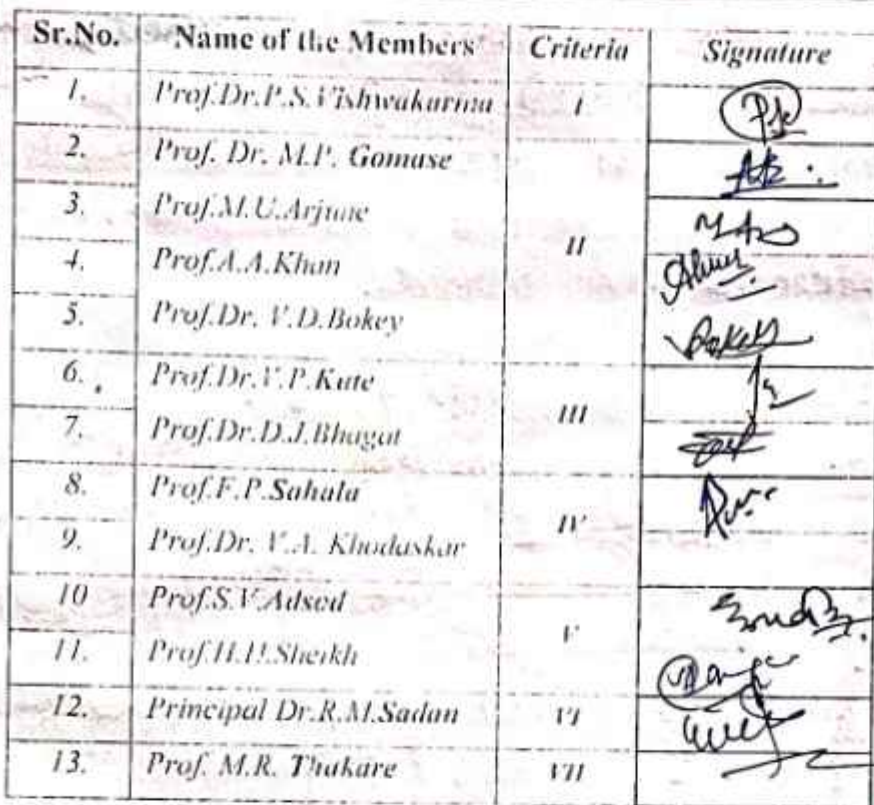 Sr.No. Name of the Members Criteria Signature
1. Prof.Dr.P.S.Vishwakarma I
2. Prof. Dr. M.P. Gomase
3. Prof.M.U.Arjune
II
4. Prof.A.A.Khan
5. Prof.Dr. V.D.Bokey Bokey
6. Prof.Dr.V.P.Kute
III
7. Prof.Dr.D.J.Bhagat
8. Prof.F.P.Sahala
IV
9. Prof.Dr. V.A. Khodaskar
10 Prof.S.V.Adsod
V
11. Prof.H.H.Sheikh
12. Principal Dr.R.M.Sadan VI
13. Prof. M.R. Thakare VII